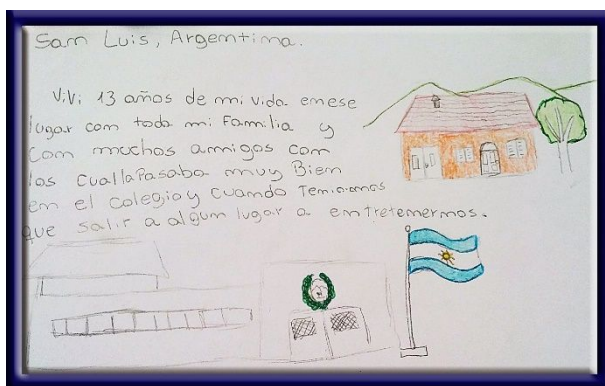 San Luis, Argentina.
Viví 13 años de mi vida enese
lugar con toda mi Familia y
Con muchos amigos con
los CuallaPasaba muy Bien
en el colegio y cuando Teniamos
que salir a algun lugar a entretenernos.